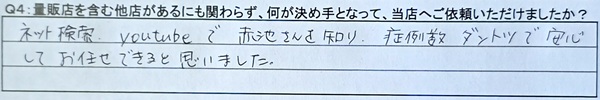 Q4:量販店を含む他店があるにも関わらず、何が決め手となって、当店へご依頼いただけましたか?
ネット検索. youtubeで 赤池さんを知り. 症例数 ダントツで 安心
して お任せできると 思いました.